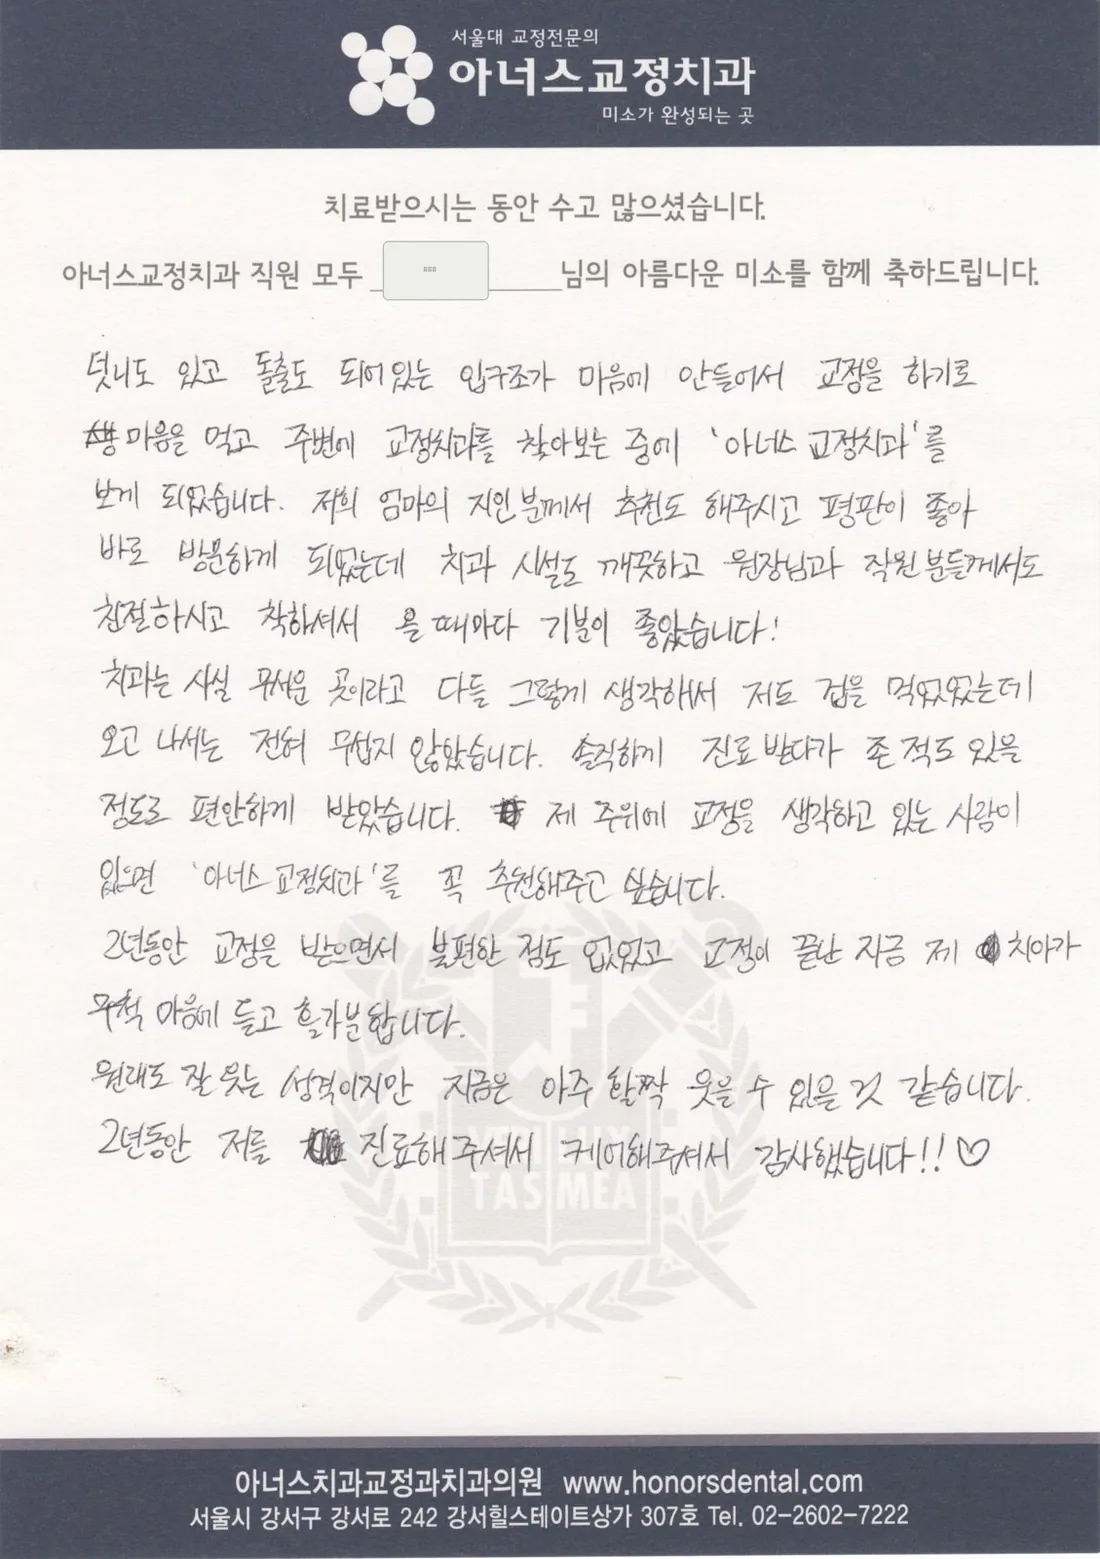 서울대 교정전문의
아너스교정치과
미소가 완성되는 곳
치료받으시는 동안 수고 많으셨습니다.
아너스교정치과 직원 모두 님의 아름다운 미소를 함께 축하드립니다.
덧니도 있고 돌출도 되어있는 입구조가 마음에 안들어서 교정을 하기로
마음을 먹고 주변에 교정치과를 찾아보는 중에 '아너스 교정치과'를
보게 되었습니다. 저희 엄마의 지인분께서 추천도 해주시고 평판이 좋아
바로 방문하게 되었는데 치과 시설도 깨끗하고 원장님과 직원분들께서도
친절하시고 착하셔서 올 때마다 기분이 좋았습니다!
치과는 사실 무서운 곳이라고 다들 그렇게 생각해서 저도 겁을 먹었었는데
오고 나서는 전혀 무섭지 않았습니다. 솔직하게 진료 받다가 존 적도 있을
정도로 편안하게 받았습니다. 제 주위에 교정을 생각하고 있는 사람이
있으면 '아너스 교정치과'를 꼭 추천해주고 싶습니다.
2년동안 교정을 받으면서 불편한 점도 없었고 교정이 끝난 지금 제 치아가
무척 마음에 들고 홀가분합니다.
원래도 잘 웃는 성격이지만 지금은 아주 활짝 웃을 수 있을 것 같습니다.
2년동안 저를 진료해주셔서 케어해주셔서 감사했습니다!! ♡
VERI LUX
TAS MEA
아너스치과교정과치과의원 www.honorsdental.com
서울시 강서구 강서로 242 강서힐스테이트상가 307호 Tel. 02-2602-7222